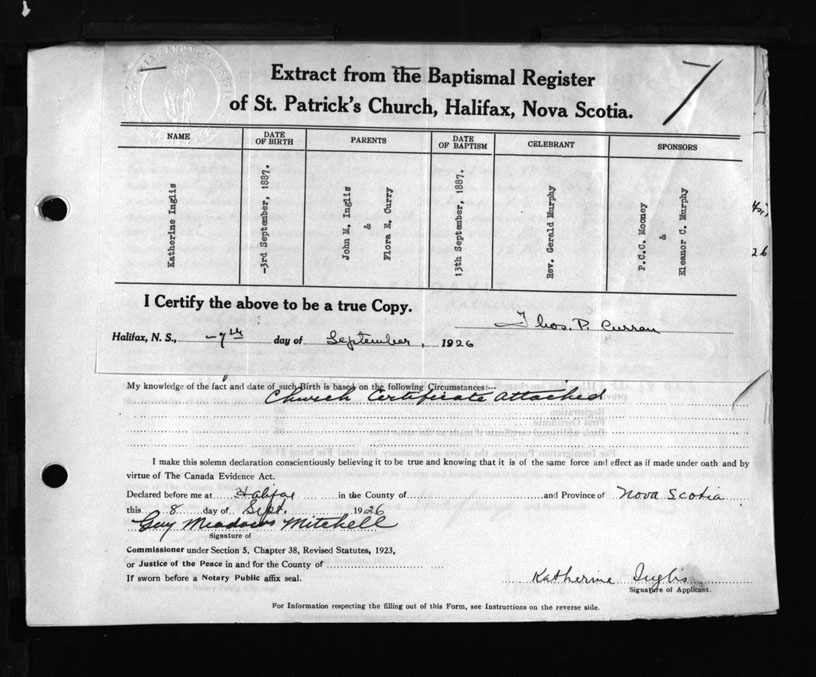 Extract from the Baptismal Register
of St. Patrick's Church, Halifax, Nova Scotia.
NAME
DATE OF BIRTH
PARENTS
DATE OF BAPTISM
CELEBRANT
SPONSORS
Katherine Inglis
-3rd September, 1887.
John M. Inglis
&
Flora E. Curry
13th September, 1887.
Rev. Gerald Murphy
P.C.C. Mooney
&
Eleanor C. Murphy
26
I Certify the above to be a true Copy.
Thos. P. Curran
Halifax, N. S., -7th day of September, 1926
My knowledge of the fact and date of such Birth is based on the following Circumstances:—
Church Certificate attached
I make this solemn declaration conscientiously believing it to be true and knowing that it is of the same force and effect as if made under oath and by
virtue of The Canada Evidence Act.
Declared before me at Halifax in the County of and Province of Nova Scotia
this 8 day of Sept. 1926
Guy Meadows Mitchell
Signature of
Commissioner under Section 5, Chapter 38, Revised Statutes, 1923,
or Justice of the Peace in and for the County of
If sworn before a Notary Public affix seal.
Katherine Inglis
Signature of Applicant.
For Information respecting the filling out of this Form, see Instructions on the reverse side.